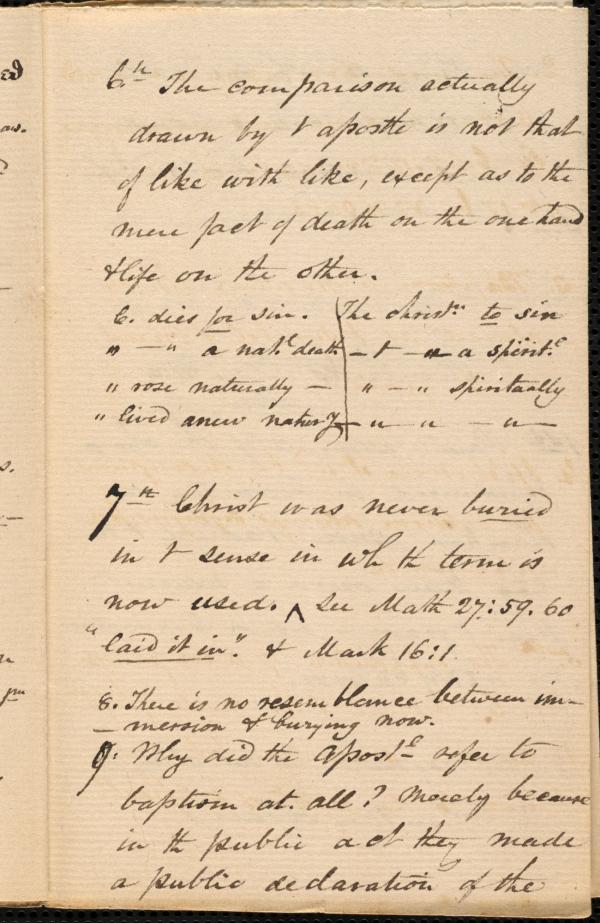 6th The comparison actually
drawn by t apostle is not that
of like with like, except as to the
mere fact of death on the one hand
& life on the other.
C. dies for sin. | The christn to sin
" — " a natl death — t — " a spiritl
" rose naturally — " — " spiritually
" lived anew — " — " — " —
7th Christ was never buried
in t sense in wh th term is
now used. ^ See Math 27:59.60
"laid it in". & Mark 16:1
8. There is no resemblance between im-
- mersion & burying now.
9. Why did the Apostle refer to
baptism at all? Merely because
in th public act they made
a public declaration of the